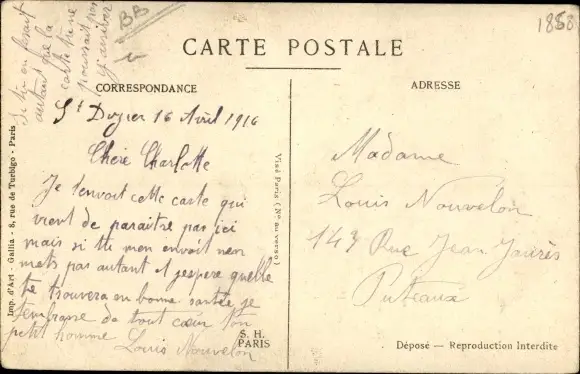 BB
1858
CARTE POSTALE
CORRESPONDANCE
ADRESSE
St Dizier 16 Avril 1916
Chère Charlotte
Je t'envoit cette carte qui
vient de paraitre par ici
mais si tu men envoit nen
mets pas autant et jespere quelle
te trouvera en bonne santée je
tembrasse de tout cœur Ton
petit homme
Louis Nouvelon
autant que la
carte ne
Madame
Louis Nouvelon
143 Rue Jean Jaurès
Puteaux
Imp. d'Art - Gallia - 8, rue de Turbigo - Paris
Visé Paris (No au verso)
S. H.
PARIS
Déposé — Reproduction Interdite